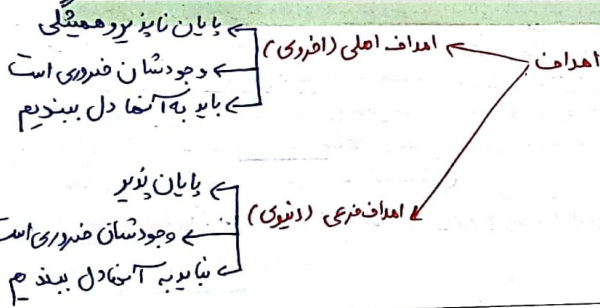 اهداف
اهداف اصلی (اخروی)
پایان ناپذیر و همیشگی
وجودشان ضروری است
باید به آنها دل ببندیم
اهداف فرعی (دنیوی)
پایان پذیر
وجودشان ضروری است
نباید به آنها دل ببندیم